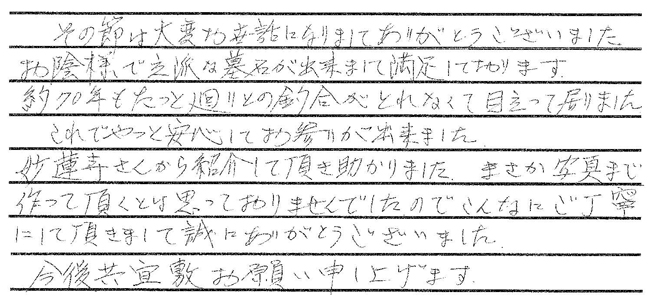 その節は大変お世話になりましてありがとうございました
お陰様で立派な墓石が出来まして満足しております.
約70年もたつと廻りとの釣合がとれなくて目立って居りました
これでやっと安心してお参りが出来ました.
妙蓮寺さんから紹介して頂き助かりました. まさか写真まで
作って頂くとは思っておりませんでしたのでこんなにご丁寧
にして頂きまして誠にありがとうございました.
今後共宜敷お願い申し上げます.